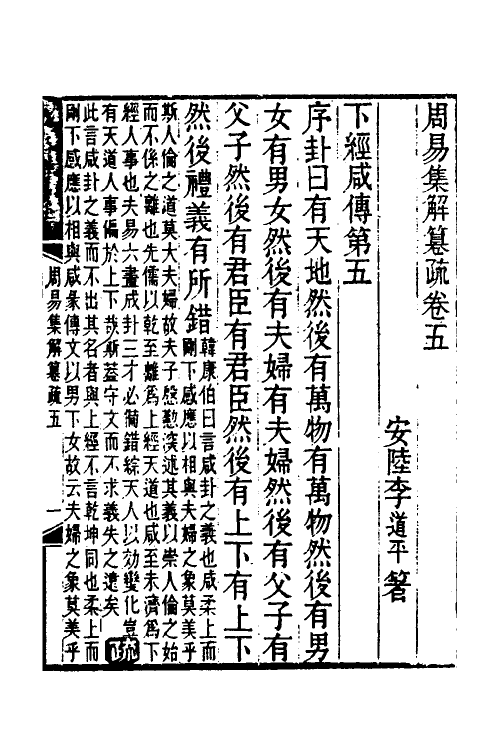 周易集解篹疏卷五
安陸李道平箸
下經咸傳第五
序卦曰有天地然後有萬物有萬物然後有男
女有男女然後有夫婦有夫婦然後有父子有
父子然後有君臣有君臣然後有上下有上下
然後禮義有所錯
韓康伯曰言咸卦之義也咸柔上而
剛下感應以相與夫婦之象莫美乎
斯人倫之道莫大夫婦故夫子慇懃演述其義以崇人倫之始
而不係之離也先儒以乾至離爲上經天道也咸至未濟爲下
經人事也夫易六畫成卦三才必備錯綜天人以效變化豈
有天道人事偏於上下哉斯蓋守文而不求義失之遠矣
疏
此言咸卦之義而不出其名者與上經不言乾坤同也柔上而
剛下感應以相與咸彖傳文以男下女故云夫婦之象莫美乎
周易集解篹疏五
一